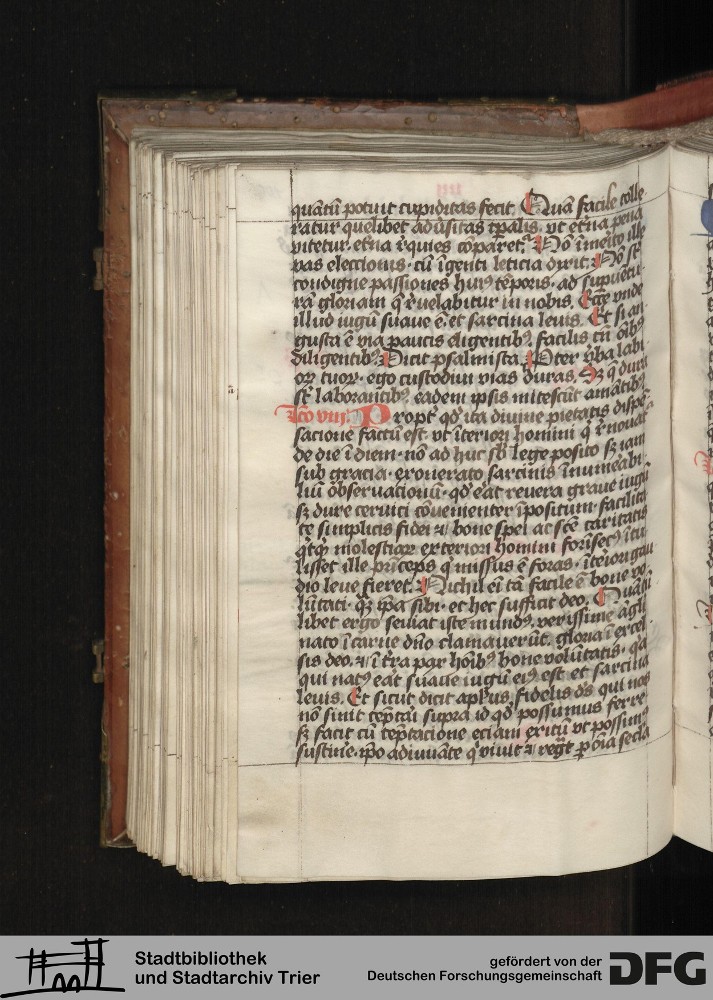 quātū potuit cupiditas fecit. Quā facile tolle
ratur quelibet adūsitas tp̄alis. ut etīna pena
vitetur. etīna r̄quies cōparet᷑. Nō īm̄ito ille
vas eleccionis. cū īgenti leticia dixit. Nō st̄
condigne passiones huiꝰ tēporis. ad supūetu
rā gloriam q̄ r̄uelabitur in nobis. Ecce unde
illud iugū suaue ē. et sarcina leuis. Et si an
gusta ē via paucis eligentibꝰ. facilis tn̄ oībꝰ
diligentibꝰ. Dicit psalmista. Pter v̄ba labi
oꝝ tuoꝝ. ego custodiui vias duras. Sꝫ q̄ dura
st̄ laborantibꝰ. eadem ipsis mitescūt amātibꝰ.
Lco viii. Propt᷑ qd̄ ita diuine pietatis dispē
sacione factū est. vt īteriori homini q̄ r̄nouat᷑
de die ī diem. nō ad huc sb̄ lege posito sꝫ iam
sub gracia. exonerato sarcinis īnumēabi
liū obseruacionū. qd̄ eāt reuera graue iugū
sꝫ dure ceruici cōuenienter īpositum. facilita
te simplicis fidei ⁊ bone spei ac scē caritatis
qͥcqͥd molestiaꝝ exteriori homini forīsecꝰ ītu
lisset ille prīceps qͥ missus ē foras. īteriori gau
dio leue fieret. Nichil ei tā facile ē bone vo
lūtati. qͣꝫ ip̄a sibi. et hec sufficit deo. Quātū
libet ergo seuiat iste mundꝰ. verissime āgli
nato ī carne dn̄o clamauerūt. gloria ī excel
sis deo. ⁊ ī t̄ra pax hoībꝰ bone volūtatis. qͣ
qui natꝰ eāt suaue iugū eiꝰ est et sarcina
leuis. Et sicut dicit aplūs. fidelis dꝰ qui nos
nō sinit tēptāi supra id qd̄ possumus ferre
sꝫ facit cū tēptacione eciam exitū vt possimꝰ
sustinē. xp̄o adiuuāte qͥ viuit ⁊ regt̄ ꝑ oīa secla
Stadtbibliothek
und Stadtarchiv Trier
gefördert von der
Deutschen Forschungsgemeinschaft
DFG